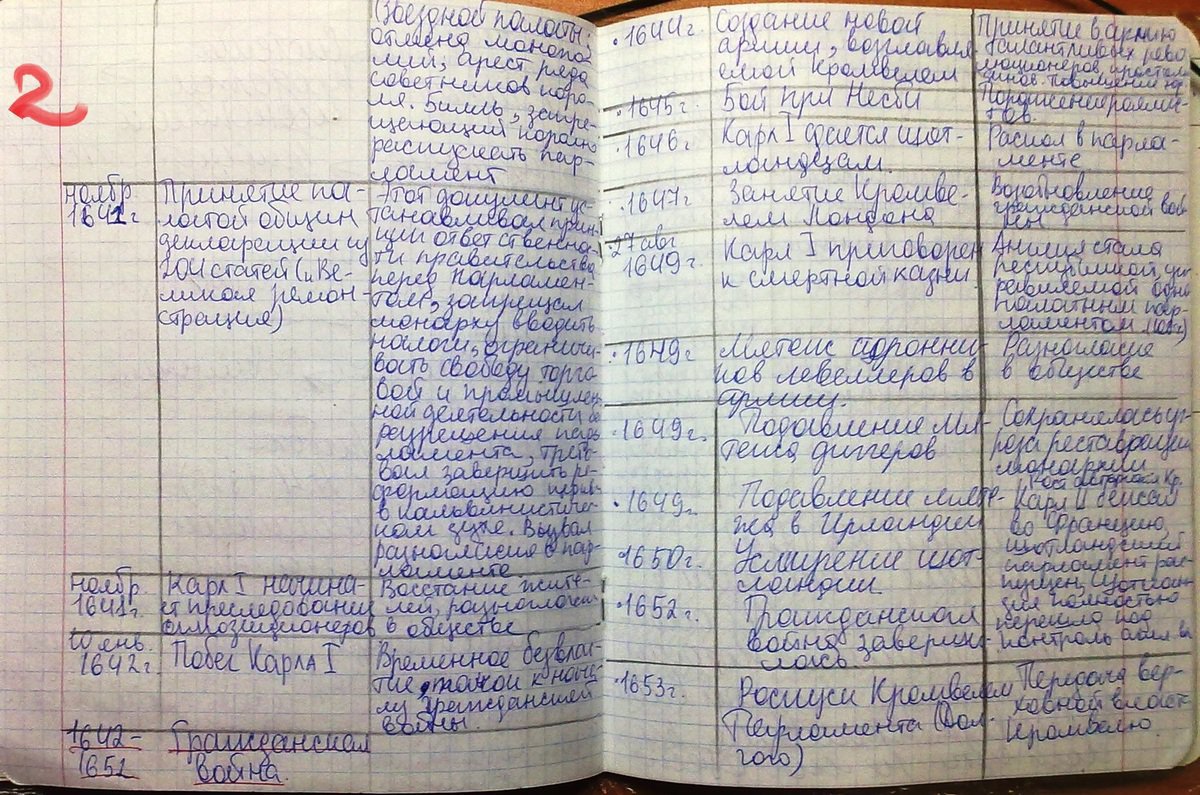 2
(Звездной палаты,
отмена монопо-
лий, арест ряда
советников коро-
ля. Билль, запре-
щающий королю
распускать пар-
ламент
ноябр.
1641г
Принятие па-
латой общин
декларации из
204 статей („Ве-
ликая ремон-
страция)
Этот документ ус-
танавливал прин-
цип ответственнос-
ти правительства
перед парламен-
том, запрещал
монарху вводить
налоги, ограничи-
вать свободу торго-
вой и промышлен-
ной деятельности без
разрешения пар-
ламента, требо-
вал завершить ре-
формацию церкви
в кальвинистичес-
ком духе. Вызвал
разногласие в пар-
ламенте
ноябр.
1641г.
Карл I начина-
ет преследования
оппозиционеров
Восстание жите-
лей, разногласия
в обществе
10 янв.
1642г.
Побег Карла I
Временное безвлас-
тие, толчок к нача-
лу гражданской
войны.
1642-
1652
Гражданская
война.
1644г.
Создание новой
армии, возглавля-
емой Кромвелем
Принятие в армию
талантливых рево-
люционеров
1645г.
Бой при Несби
Поражение роялис-
тов.
1646г.
Карл I сдается шот-
ландцам.
Раскол в парла-
менте
1647г
Занятие Кромве-
лем Лондона
Возобновление
гражданской вой-
ны
27 авг
1649г.
Карл I приговорен
к смертной казни.
Англия стала
республикой, уп-
равляемой одно-
палатным пар-
ламентом
1649г.
Мятеж сторонни-
ков левеллеров в
армии.
Разногласие
в обществе
1649г.
Подавление мя-
тежа диггеров
Сохранялась уг-
роза реставрации
монархии
1649г.
Подавление мяте-
жа в Ирландии
1650г.
Усмирение шот-
ландии.
Карл II бежал
во Францию,
шотландский
парламент рас-
пущен, Шотлан-
дия полностью
перешла под
контроль
1652г.
Гражданская
война заверши-
лась.
1653г.
Роспуск Кромвелем
Парламента (Дол-
гого)
Передача вер-
ховной власти
Кромвелю.